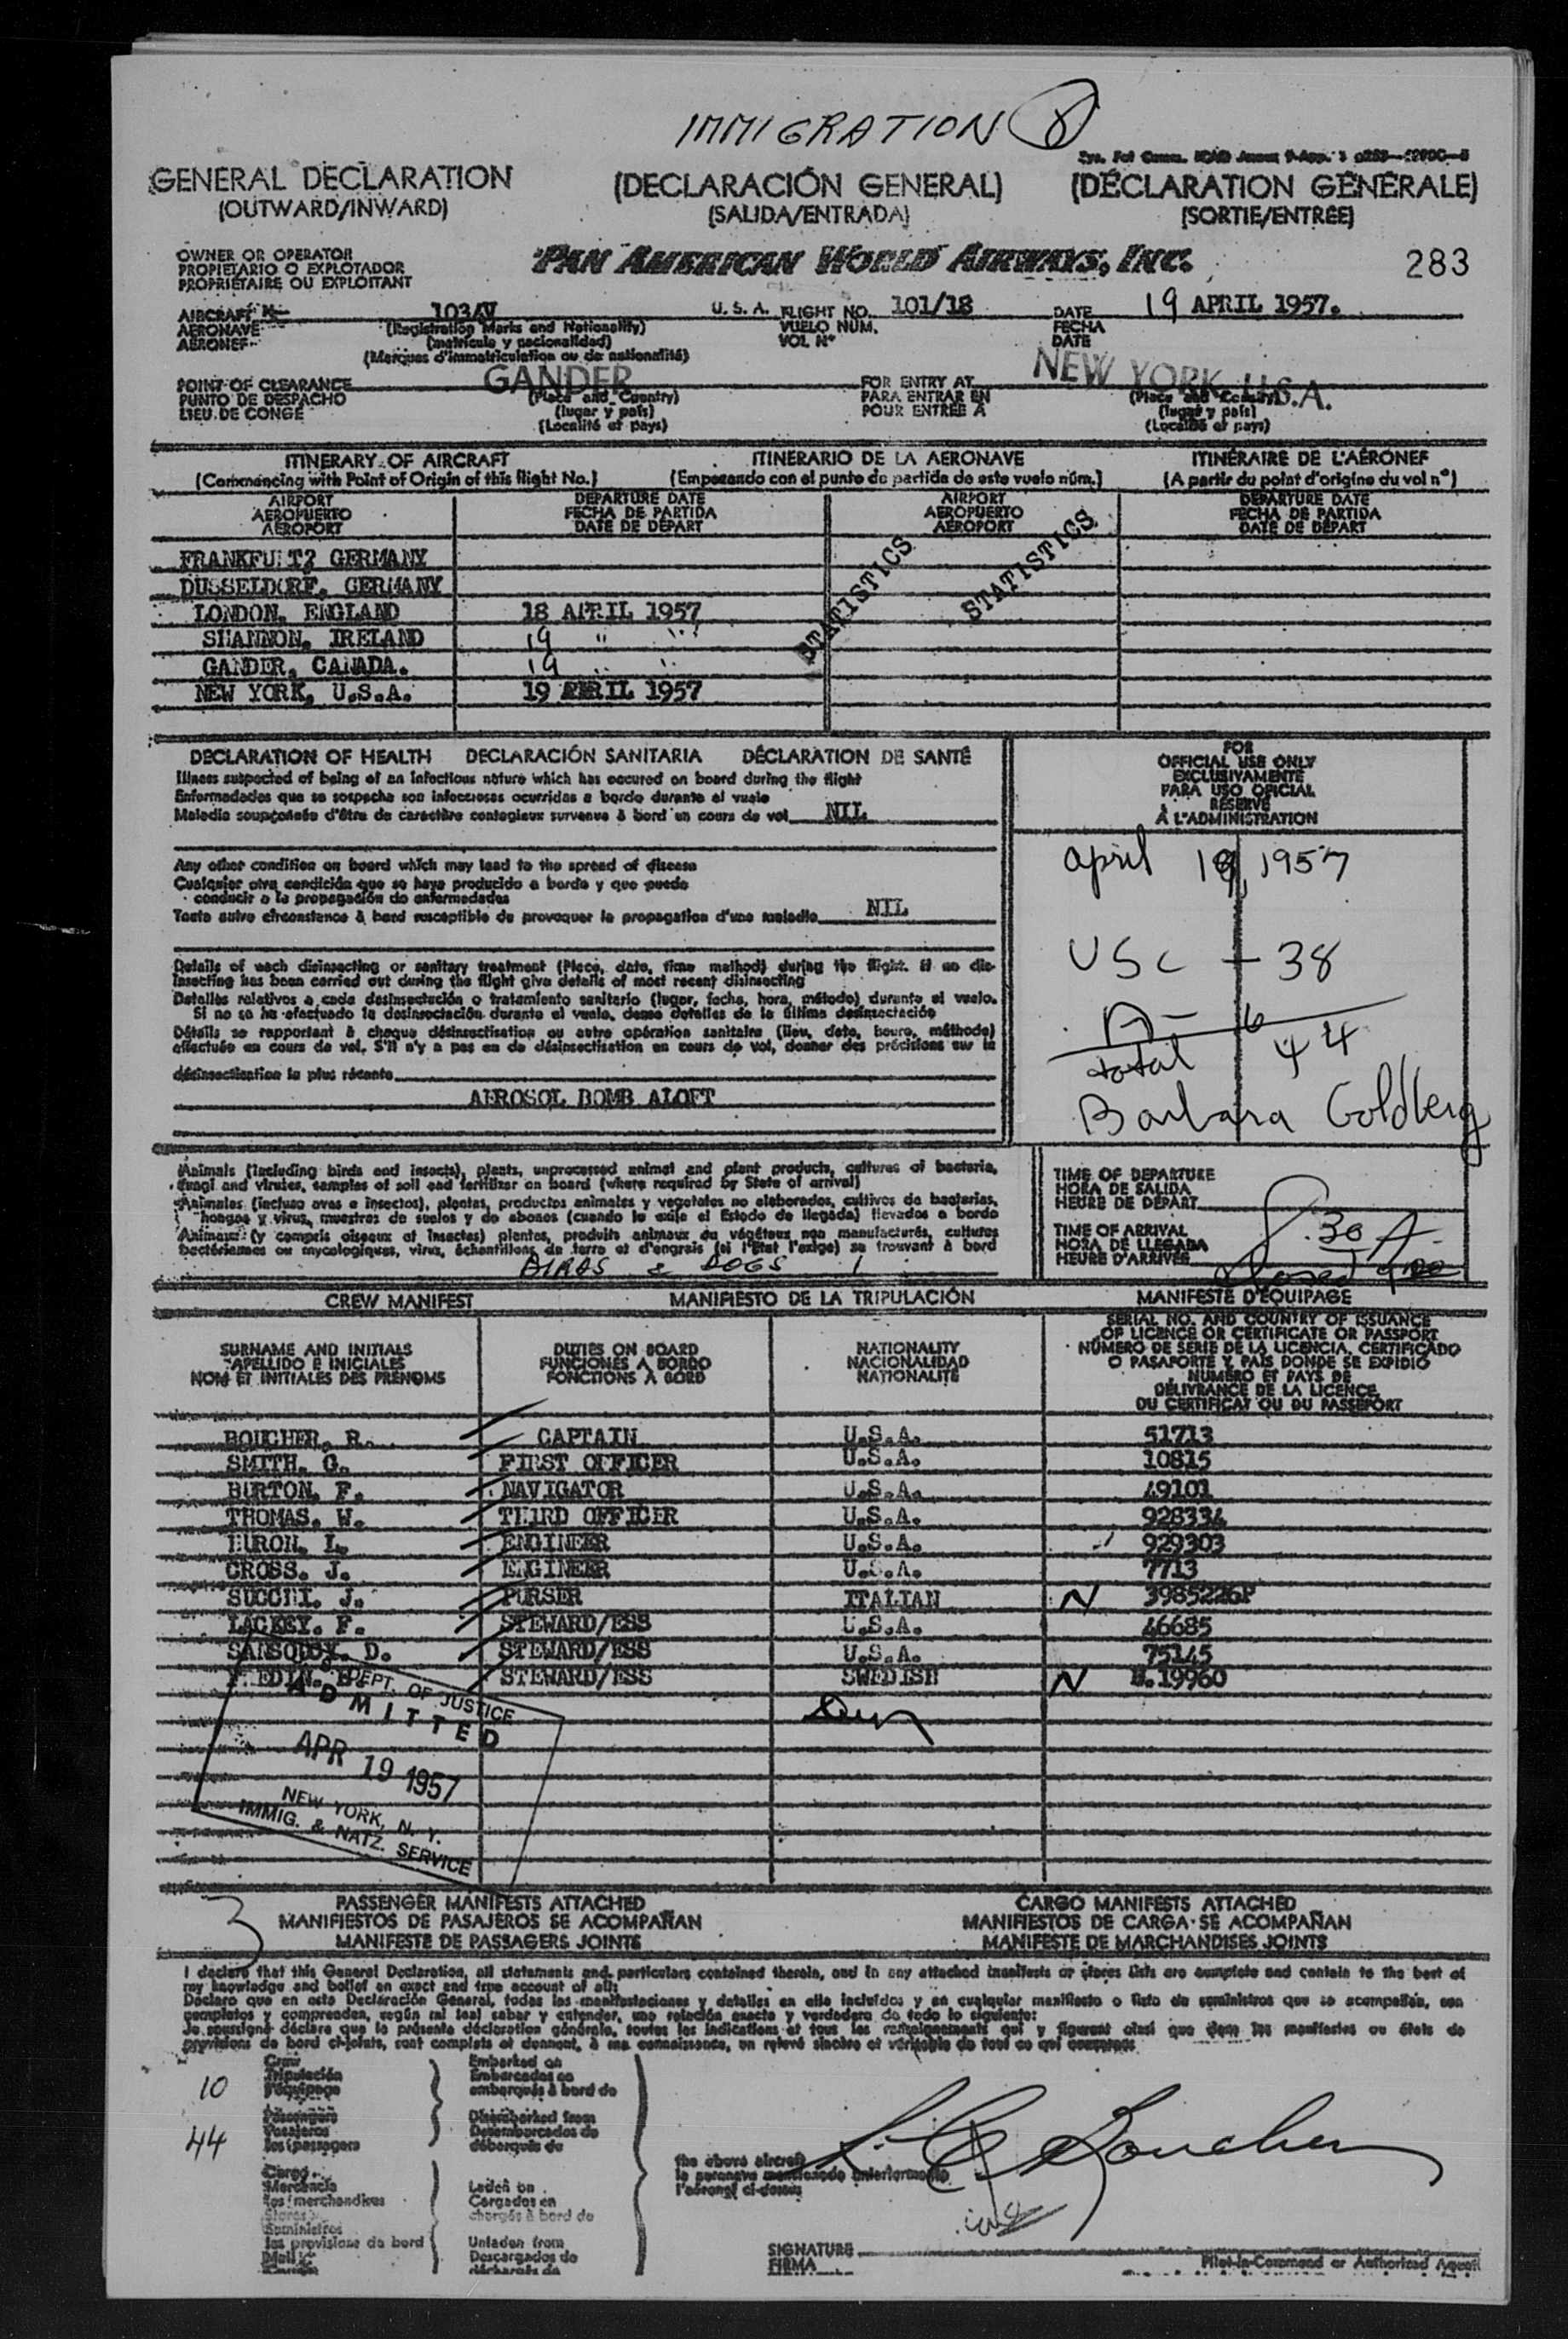 IMMIGRATION 8
GENERAL DECLARATION (DECLARACIÓN GENERAL) (DÉCLARATION GÉNÉRALE)
(OUTWARD/INWARD) (SALIDA/ENTRADA) (SORTIE/ENTRÉE)
OWNER OR OPERATOR
PROPIETARIO O EXPLOTADOR
PROPRIÉTAIRE OU EXPLOITANT
PAN AMERICAN WORLD AIRWAYS, INC. 283
AIRCRAFT 103/V U.S.A. FLIGHT NO. 101/18 DATE 19 APRIL 1957.
AERONAVE (Registration Marks and Nationality) VUELO NÚM. FECHA
AÉRONEF (matrícula y nacionalidad) VOL Nº DATE
(Marques d'immatriculation ou de nationalité)
POINT OF CLEARANCE GANDER FOR ENTRY AT NEW YORK, U.S.A.
PUNTO DE DESPACHO (Place and Country) PARA ENTRAR EN (Place and Country)
LIEU DE CONGÉ (lugar y país) POUR ENTRÉE À (lugar y país)
(Localité et pays) (Localité et pays)
ITINERARY OF AIRCRAFT ITINERARIO DE LA AERONAVE ITINÉRAIRE DE L'AÉRONEF
(Commencing with Point of Origin of this flight No.) (Empezando con el punto de partida de este vuelo núm.) (A partir du point d'origine du vol nº)
AIRPORT DEPARTURE DATE AIRPORT DEPARTURE DATE
AEROPUERTO FECHA DE PARTIDA AEROPUERTO FECHA DE PARTIDA
AÉROPORT DATE DE DÉPART AÉROPORT DATE DE DÉPART
GERMANY
DUSSELDORF, GERMANY
LONDON, ENGLAND 18 APRIL 1957
SHANNON, IRELAND 19 " "
GANDER, CANADA. 19 " "
NEW YORK, U.S.A. 19 APRIL 1957
STATISTICS
STATISTICS
DECLARATION OF HEALTH DECLARACIÓN SANITARIA DÉCLARATION DE SANTÉ
Illness suspected of being of an infectious nature which has occured on board during the flight
Enfermedades que se sospecha son infecciosas ocurridas a bordo durante el vuelo
Maladie soupçonnée d'être de caractère contagieux survenue à bord en cours de vol NIL
Any other condition on board which may lead to the spread of disease
Cualquier otra condición que se haya producido a bordo y que puede
conducir a la propagación de enfermedades
Toute autre circonstance à bord susceptible de provoquer la propagation d'une maladie NIL
Details of each disinsecting or sanitary treatment (Place, date, time method) during the flight. If no dis-
insecting has been carried out during the flight give details of most recent disinsecting
Detalles relativos a cada desinsectación o tratamiento sanitario (lugar, fecha, hora, método) durante el vuelo.
Si no se ha efectuado la desinsectación durante el vuelo, dense detalles de la última desinsectación
Détails se rapportant à chaque désinsectisation ou autre opération sanitaire (lieu, date, heure, méthode)
effectuée en cours de vol. S'il n'y a pas eu de désinsectisation en cours de vol, donner des précisions sur la
désinsectisation la plus récente
AEROSOL BOMB ALOFT
FOR
OFFICIAL USE ONLY
EXCLUSIVAMENTE
PARA USO OFICIAL
RÉSERVÉ
À L'ADMINISTRATION
April 19, 1957
USC - 38
A - 6
total 44
Barbara Goldberg
Animals (including birds and insects), plants, unprocessed animal and plant products, cultures of bacteria,
fungi and viruses, samples of soil and fertilizer on board (where required by State of arrival)
Animales (incluso aves e insectos), plantas, productos animales y vegetales no elaborados, cultivos de bacterias,
hongos y virus, muestras de suelos y de abonos (cuando lo exija el Estado de llegada) llevados a bordo
Animaux (y compris oiseaux et insectes) plantes, produits animaux ou végétaux non manufacturés, cultures
bactériennes ou mycologiques, virus, échantillons de terre et d'engrais (si l'État l'exige) se trouvant à bord
BIRDS & DOGS 1
TIME OF DEPARTURE
HORA DE SALIDA
HEURE DE DÉPART
TIME OF ARRIVAL 8.30 A.
HORA DE LLEGADA
HEURE D'ARRIVÉE closed 9.00
CREW MANIFEST MANIFIESTO DE LA TRIPULACIÓN MANIFESTE D'ÉQUIPAGE
SURNAME AND INITIALS DUTIES ON BOARD NATIONALITY SERIAL NO. AND COUNTRY OF ISSUANCE
APELLIDO E INICIALES FUNCIONES A BORDO NACIONALIDAD OF LICENCE OR CERTIFICATE OR PASSPORT
NOM ET INITIALES DES PRÉNOMS FONCTIONS À BORD NATIONALITÉ NÚMERO DE SERIE DE LA LICENCIA, CERTIFICADO
O PASAPORTE Y PAÍS DONDE SE EXPIDIÓ
NUMÉRO ET PAYS DE
DÉLIVRANCE DE LA LICENCE,
DU CERTIFICAT OU DU PASSEPORT
BOUCHER, R. CAPTAIN U.S.A. 51713
SMITH, G. FIRST OFFICER U.S.A. 10815
BURTON, F. NAVIGATOR U.S.A. 49101
THOMAS, W. THIRD OFFICER U.S.A. 928334
L. ENGINEER U.S.A. 929303
CROSS, J. ENGINEER U.S.A. 7713
J. PURSER ITALIAN N 3985226P
LACKEY, F. STEWARD/ESS U.S.A. 46685
D. STEWARD/ESS U.S.A. 75145
STEWARD/ESS SWEDISH N 19960
DEPT. OF JUSTICE
ADMITTED
APR 19 1957
NEW YORK, N. Y.
IMMIG. & NATZ. SERVICE
3 PASSENGER MANIFESTS ATTACHED CARGO MANIFESTS ATTACHED
MANIFIESTOS DE PASAJEROS SE ACOMPAÑAN MANIFIESTOS DE CARGA SE ACOMPAÑAN
MANIFESTE DE PASSAGERS JOINTS MANIFESTE DE MARCHANDISES JOINTS
I declare that this General Declaration, all statements and particulars contained therein, and in any attached manifests or stores lists are complete and contain to the best of
my knowledge and belief an exact and true account of all:
Declaro que en esta Declaración General, todas las manifestaciones y detalles en ella incluídos y en cualquier manifiesto o lista de suministros que se acompañen, son
completos y comprenden, según mi leal saber y entender, una relación exacta y verdadera de todo lo siguiente:
Je soussigné déclare que la présente déclaration générale, toutes les indications et tous les renseignements qui y figurent ainsi que dans les manifestes ou états de
provisions de bord ci-joints, sont complets et donnent, à ma connaissance, un relevé sincère et véritable de tout ce qui
Crew Embarked on
10 Tripulación Embarcados en
l'équipage embarqués à bord de
Passengers Disembarked from
44 Pasajeros Desembarcados de
les passagers débarqués de
the above aircraft
la aeronave mencionada anteriormente
l'aéronef ci-dessus
Cargo
Mercancía Laden on
les merchandises Cargados en
Stores chargés à bord de
Suministros
les provisions de bord Unladen from
Mail Descargados de
déchargés de
Boucher
SIGNATURE
FIRMA Pilot-in-Command or Authorized Agent